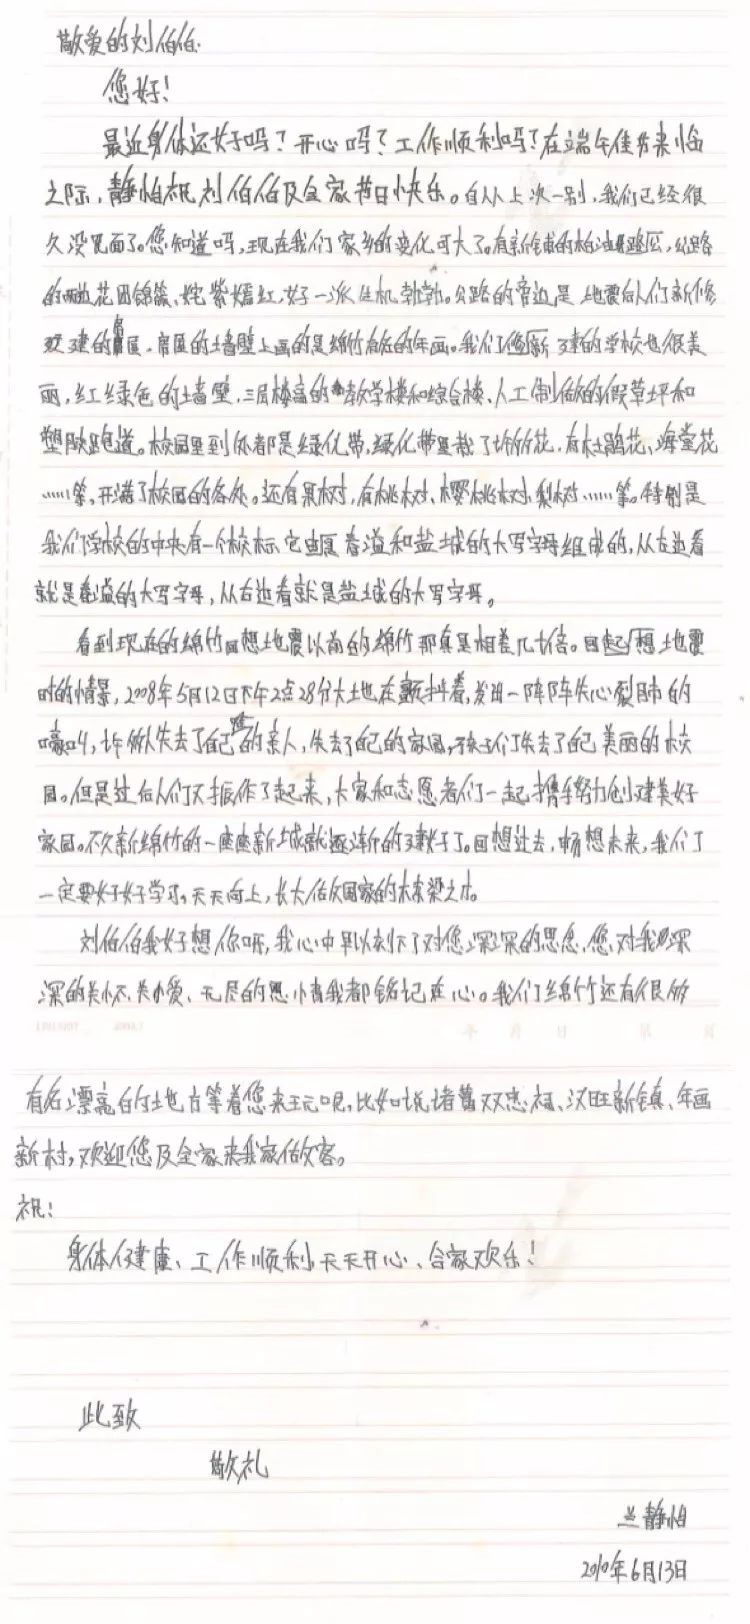 敬爱的刘伯伯:
您好!
最近身体还好吗?开心吗?工作顺利吗?在端午佳节来临
之际,静怡祝刘伯伯及全家节日快乐。自从上次一别,我们已经很
久没见面了。您知道吗,现在我们家乡的变化可大了。有新铺的柏油路,公路
的两边花团锦簇、姹紫嫣红,好一派生机勃勃。公路的旁边是地震后人们新修
建的房屋,房屋的墙壁上画的是绵竹的年画。我们新建的学校也很美
丽,红绿色的墙壁,三层楼高的教学楼和综合楼、人工制做的假草坪和
塑胶跑道。校园里到处都是绿化带,绿化带里栽了许多花,有杜鹃花、海棠花
……等,开满了校园的各处。还有果树,有桃树、樱桃树、梨树……等。特别是
我们学校的中央有一个校标,它是由春溢和盐城的大写字母组成的,从左边看
就是春溢的大写字母,从右边看就是盐城的大写字母。
看到现在的绵竹回想地震以前的绵竹那真是相差几十倍。回想地震
时的情景,2008年5月12日下午2点28分大地在颤抖着,发出一阵阵失心裂肺的
嚎叫,许多人失去了自己的亲人,失去了自己的家园,孩子们失去了自己美丽的校
园。但是过后人们又振作了起来,大家和志愿者们一起携手努力创建美好
家园。不久新绵竹的一座座新城就逐渐的建好了。回想过去,畅想未来,我们
一定要好好学习,天天向上,长大做国家的栋梁之才。
刘伯伯我好想你呀,我心中早以刻下了对您深深的思念,您对我深
深的关怀、关爱、无尽的恩情我都铭记在心。我们绵竹还有很多
有名漂亮的地方等着您来玩呢,比如说诸葛双忠祠、汉旺新镇、年画
新村,欢迎您及全家来我家做客。
祝:
身体健康、工作顺利、天天开心、合家欢乐!
此致
敬礼
兰静怡
2010年6月13日